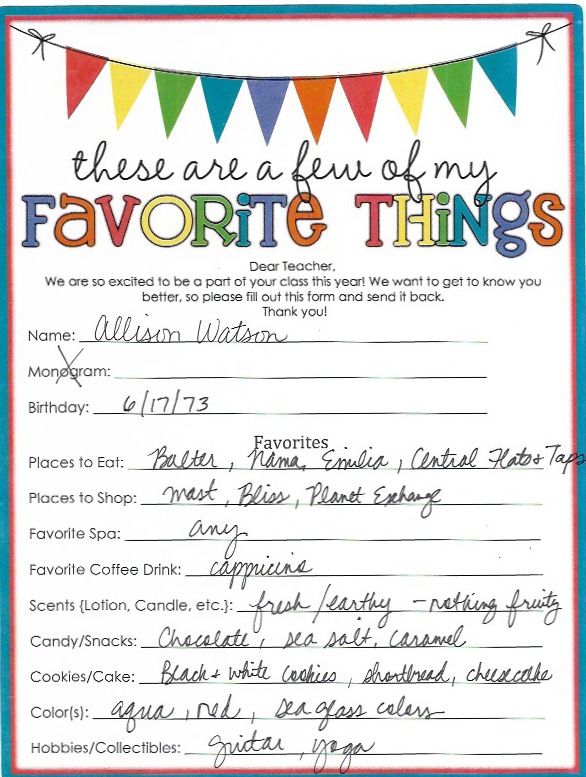 these are a few of my
FAVORITE THINGS
Dear Teacher,
We are so excited to be a part of your class this year! We want to get to know you
better, so please fill out this form and send it back.
Thank you!
Name: Allison Watson
Monogram:
Birthday: 6/17/73
Favorites
Places to Eat: Balter, Nama, Emilia, Central Flats + Taps
Places to Shop: Mast, Bliss, Planet Exchange
Favorite Spa: any
Favorite Coffee Drink: cappicino
Scents {Lotion, Candle, etc.}: fresh/earthy - nothing fruity
Candy/Snacks: Chocolate, sea salt, caramel
Cookies/Cake: Black + white cookies, shortbread, cheesecake
Color(s): aqua, red, sea glass colors
Hobbies/Collectibles: guitar, yoga